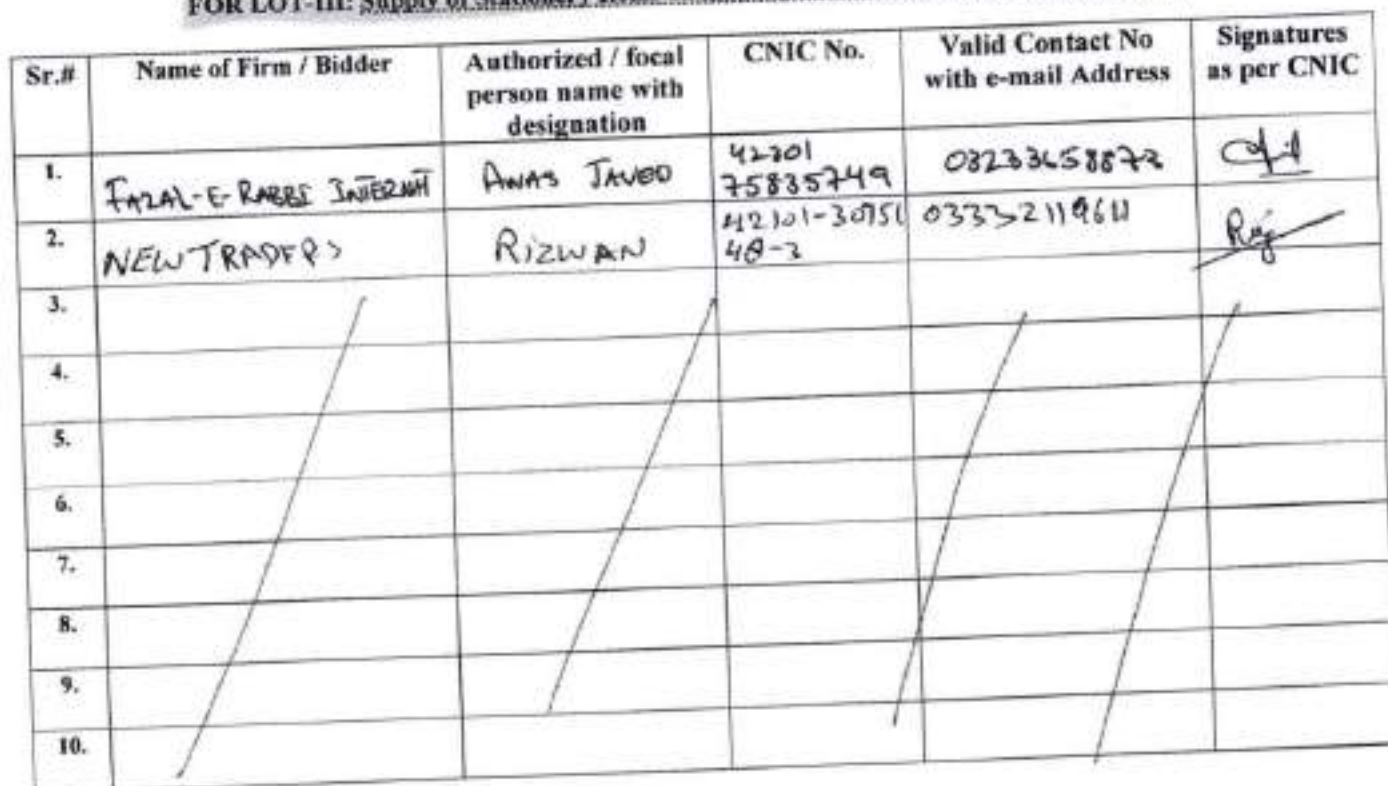 FOR LOT-III: Supply of Stationery
Sr.# Name of Firm / Bidder Authorized / focal person name with designation CNIC No. Valid Contact No with e-mail Address Signatures as per CNIC
1. FAZAL-E-RABBI INTERNAT ANAS JAVED 42301 75835749 03233658873
2. NEW TRADERS RIZWAN 42101-30751 48-3 03332119611
3.
4.
5.
6.
7.
8.
9.
10.